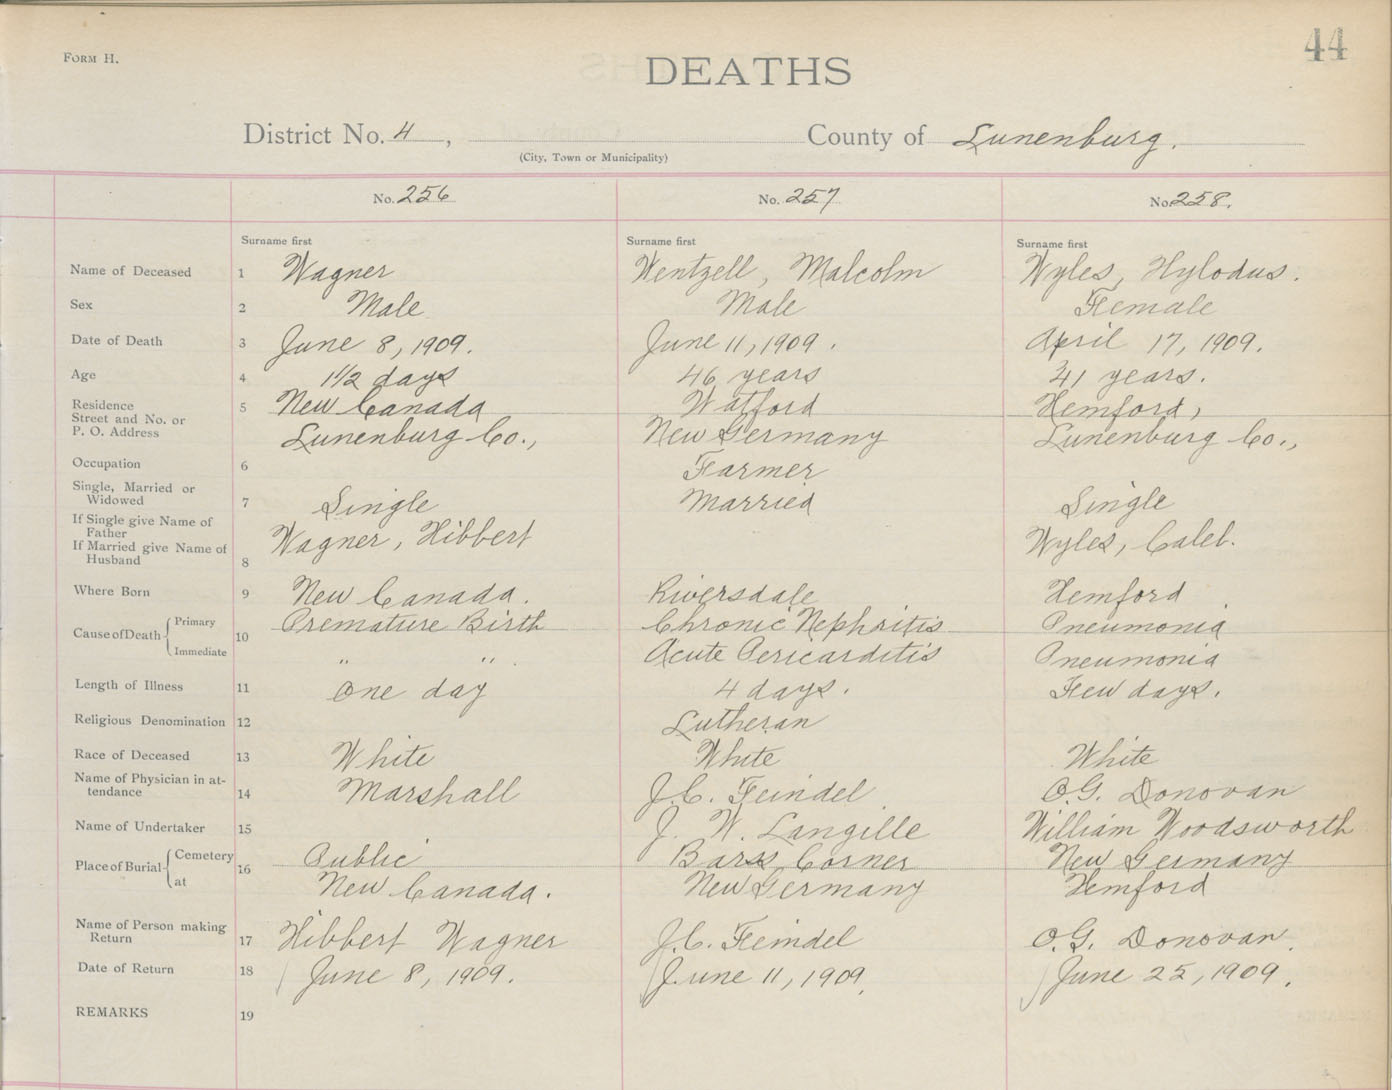 44
FORM H.
DEATHS
District No. 4, County of Lunenburg.
(City, Town or Municipality)
No. 256 No. 257 No. 258.
Surname first Surname first Surname first
Name of Deceased 1 Wagner Wentzell, Malcolm Wyles, Hylodus.
Sex 2 Male Male Female
Date of Death 3 June 8, 1909. June 11, 1909. April 17, 1909.
Age 4 1 1/2 days 46 years 41 years.
Residence 5 New Canada Watford Hemford,
Street and No. or
P. O. Address Lunenburg Co., New Germany Lunenburg Co.,
Occupation 6 Farmer
Single, Married or
Widowed 7 Single Married Single
If Single give Name of
Father
If Married give Name of Wagner, Hibbert Wyles, Caleb.
Husband 8
Where Born 9 New Canada. Riversdale Hemford
Cause of Death { Primary 10 Premature Birth Chronic Nephritis Pneumonia
Immediate " ". Acute Pericarditis Pneumonia
Length of Illness 11 One day 4 days. Few days.
Religious Denomination 12 Lutheran
Race of Deceased 13 White White White
Name of Physician in at-
tendance 14 Marshall J.C. Feindel. O.G. Donovan
Name of Undertaker 15 J. W. Langille William Woodsworth
Place of Burial { Cemetery 16 Public Barss Corner New Germany
at New Canada. New Germany Hemford
Name of Person making
Return 17 Hibbert Wagner J.C. Feindel O.G. Donovan.
Date of Return 18 June 8, 1909. June 11, 1909. June 25, 1909.
REMARKS 19